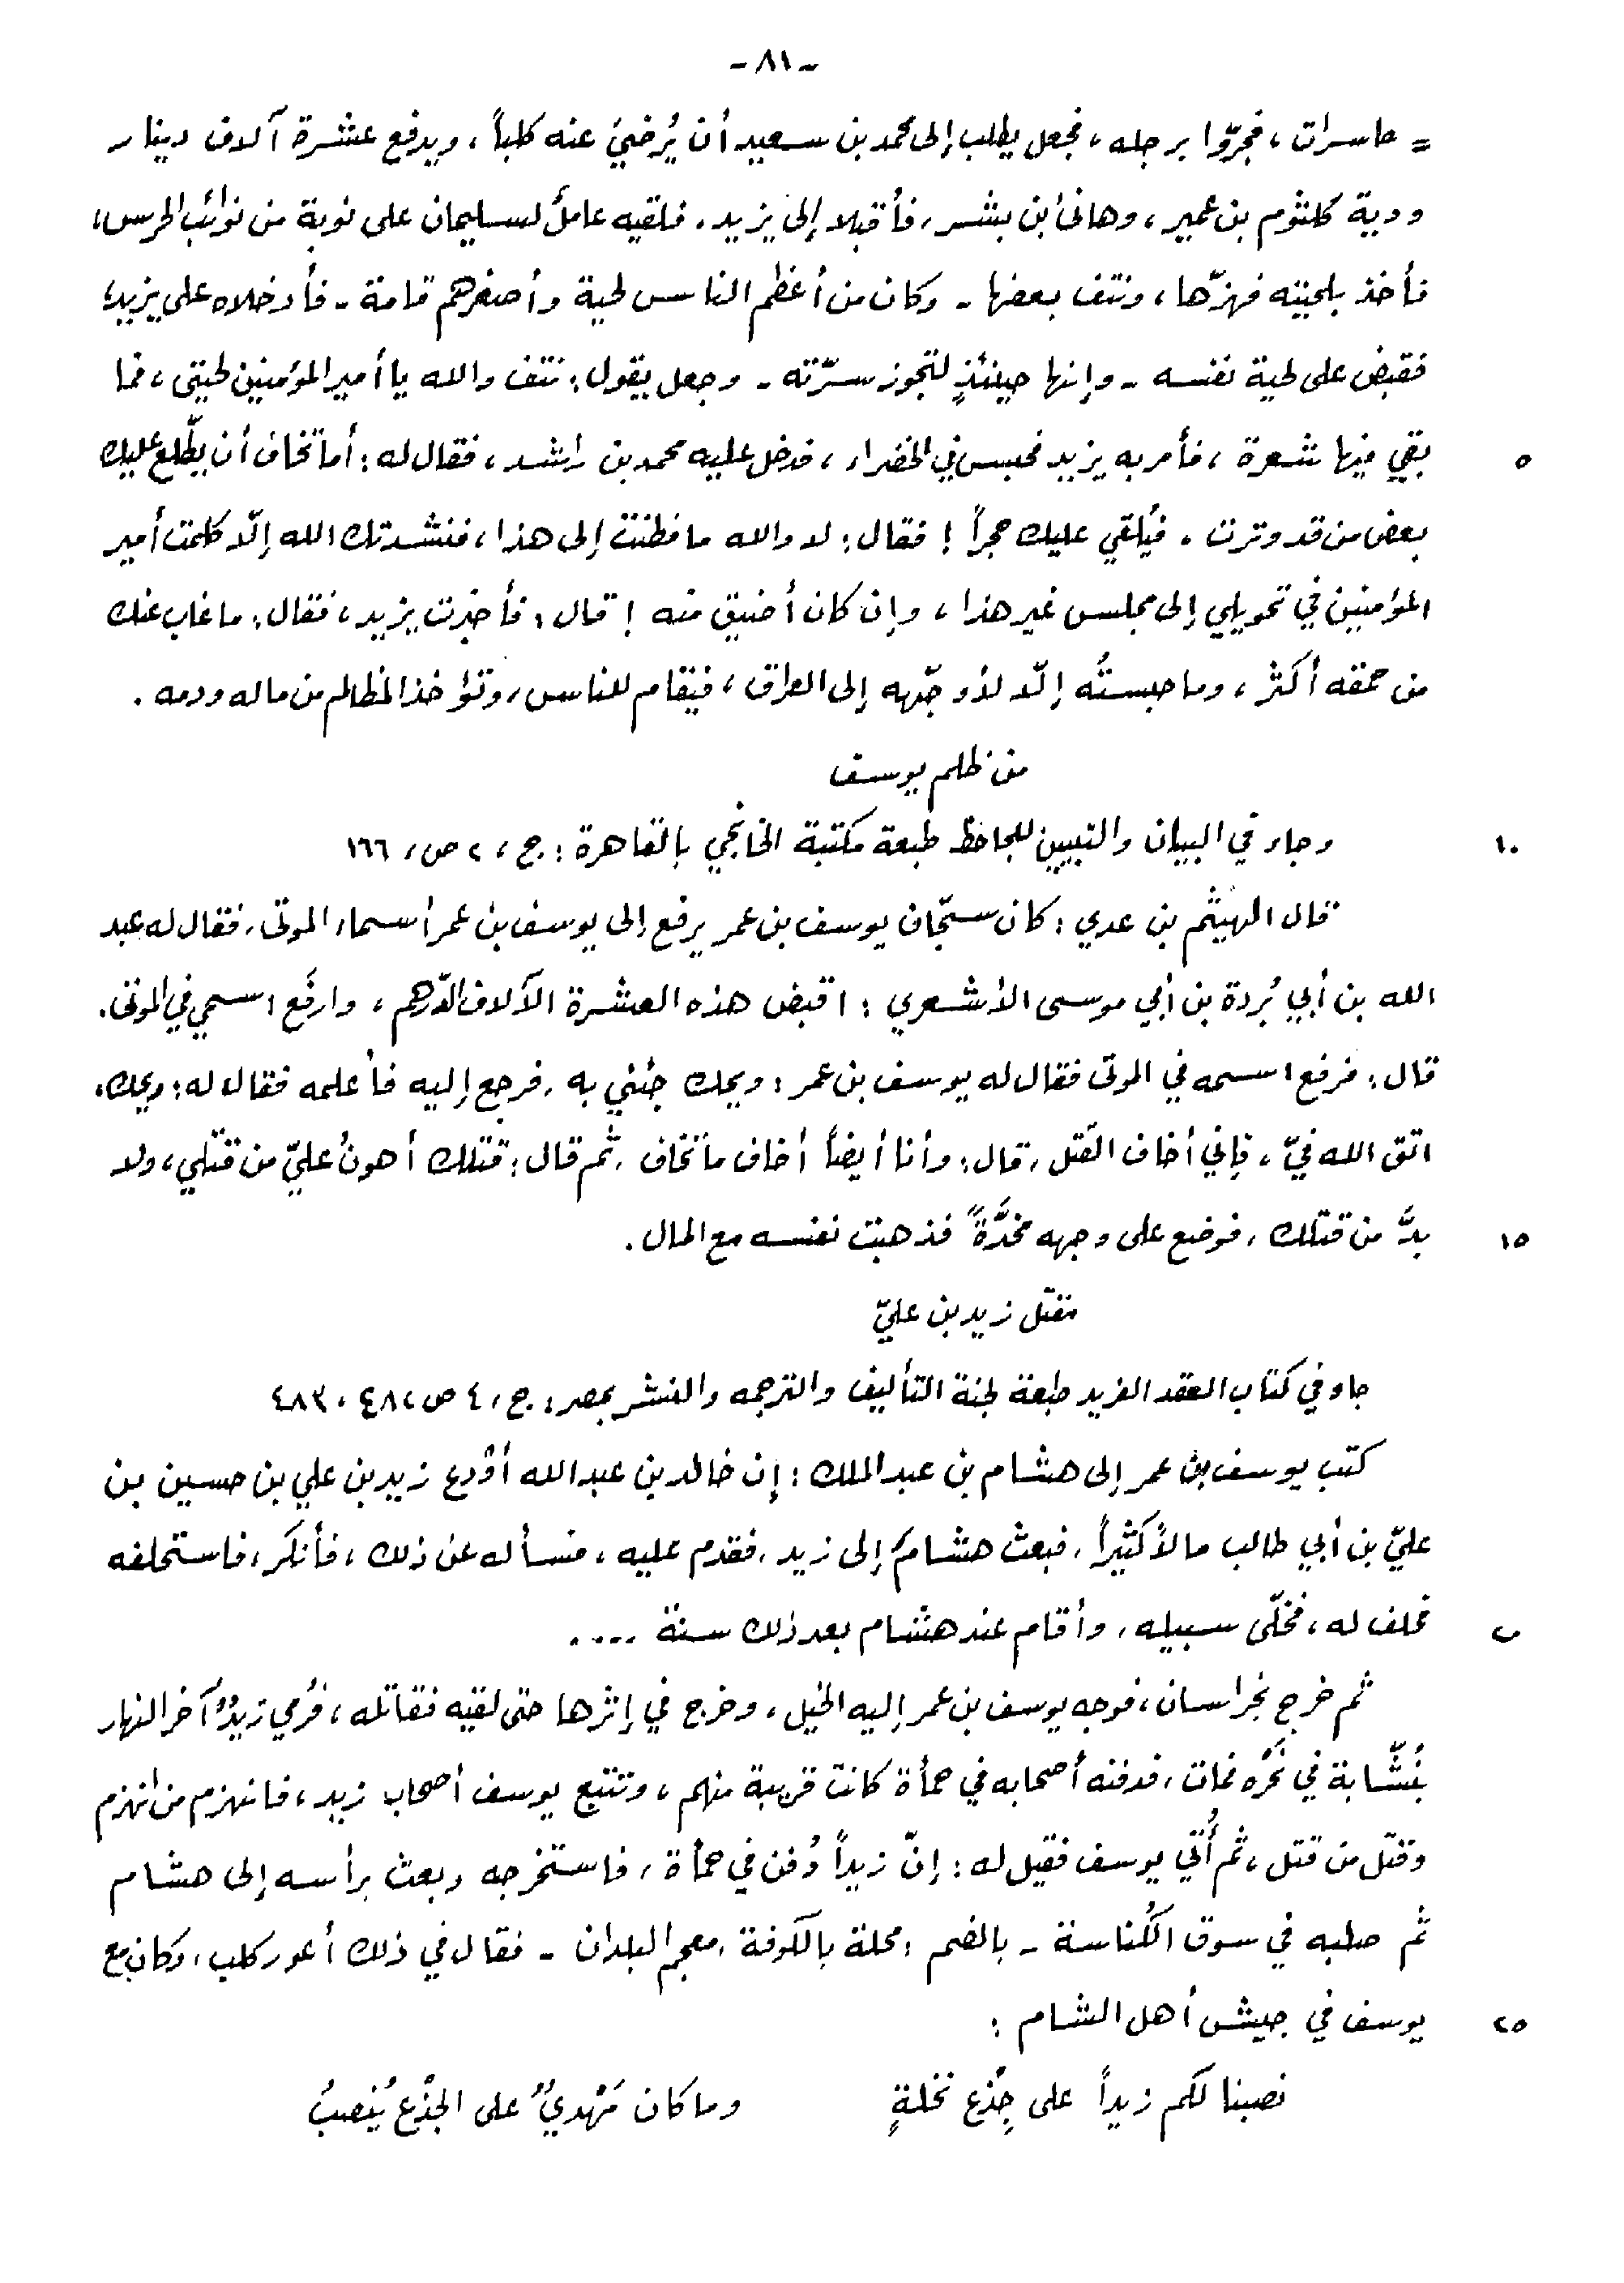 - ٨١ -
= حاسرات ، فجرّوا برجله ، فجعل يطلب إلى محمد بن سعيد أن يُرضيَ عنه كلباً ، ويدفع عشرة آلاف دينار
ودية كلثوم بن عمير ، وهانئ بن بشر ، فأقبلا إلى يزيد . فلقيه عاملٌ لسليمان على نوبة من نوائب الحرس ،
فأخذ بلحيته فهزّها ، ونتف بعضها - وكان من أعظم الناس لحية وأصغرهم قامة - فأدخلاه على يزيد ،
فقبض على لحية نفسه - وإنها حينئذٍ لتجوز سرّته - وجعل يقول : نتف والله يا أمير المؤمنين لحيتي ، فما
بقي فيها شعرة ، فأمر به يزيد فحبس في الخضراء ، فدخل عليه محمد بن راشد ، فقال له : أما تخاف أن يطّلع عليك
٥
بعض من قد وترت ، فيُلقي عليك حجراً ! فقال : لا والله ما فطنت إلى هذا ، فنشدتك الله إلّا كلمت أمير
المؤمنين في تحويلي إلى مجلس غير هذا ، وإن كان أضيق منه ! قال : فأخبرت يزيد ، فقال : ما غاب عنك
من حمقه أكثر ، وما حبستُه إلّا لأوجّهه إلى العراق ، فيقام للناس ، وتؤخذ المظالم من ماله ودمه .
من ظلم يوسف
وجاء في البيان والتبيين للجاحظ طبعة مكتبة الخانجي بالقاهرة : ج ، ٢ ص ، ١٦٦
١٠
قال الهيثم بن عدي : كان سجّان يوسف بن عمر يرفع إلى يوسف بن عمر أسماء الموتى ، فقال له عبد
الله بن أبي بُردة بن أبي موسى الأشعري : اقبض هذه العشرة الآلاف الدّرهم ، وارفَع اسمي في الموتى .
قال : فرفع اسمه في الموتى فقال له يوسف بن عمر : ويحك جئني به ، فرجع إليه فأعلمه فقال له : ويحك ،
اتق الله فيّ ، فإني أخاف القتل ، قال : وأنا أيضاً أخاف ما تخاف ، ثم قال : قتلك أهونُ عليّ من قتلي ، ولا
بدَّ من قتلك ، فوضع على وجهه مخدَّةً فذهبت نفسه مع المال .
١٥
مقتل زيد بن عليّ
جاء في كتاب العقد الفريد طبعة لجنة التأليف والترجمه والنشر بمصر : ج ، ٤ ص ، ٤٨٢ ، ٤٨٣
كتب يوسف بن عمر إلى هشام بن عبد الملك : إن خالد بن عبدالله أوْدع زيد بن علي بن حسين بن
عليّ بن أبي طالب مالاً كثيراً ، فبعث هشامٌ إلى زيد ، فقدم عليه ، فسأله عن ذلك ، فأنكر ، فاستحلفه
فحلف له ، فخلّى سبيله ، وأقام عند هشام بعد ذلك سنة ....
٢٠
ثم خرج بخراسان ، فوجه يوسف بن عمر إليه الخيل ، وخرج في إثرها حتى لقيه فقاتله ، فرُمي زيدٌ آخر النهار
بنُشّابة في نَحْره فمات ، فدفنه أصحابه في حمأة كانت قريبة منهم ، وتتبع يوسف أصحاب زيد ، فانهزم من انهزم
وقتل من قتل ، ثم أُتي يوسف فقيل له : إنّ زيداً دُفن في حمأة ، فاستخرجه وبعث برأسه إلى هشام
ثم صلبه في سوق الكُناسة - بالضم : محلة بالكوفة ، معجم البلدان - فقال في ذلك أعور كلب ، وكان مع
يوسف في جيش أهل الشام :
٢٥
نصبنا لكم زيداً على جِذْع نخلةٍ وما كان مَهْديٌّ على الجذْع يُنصبُ